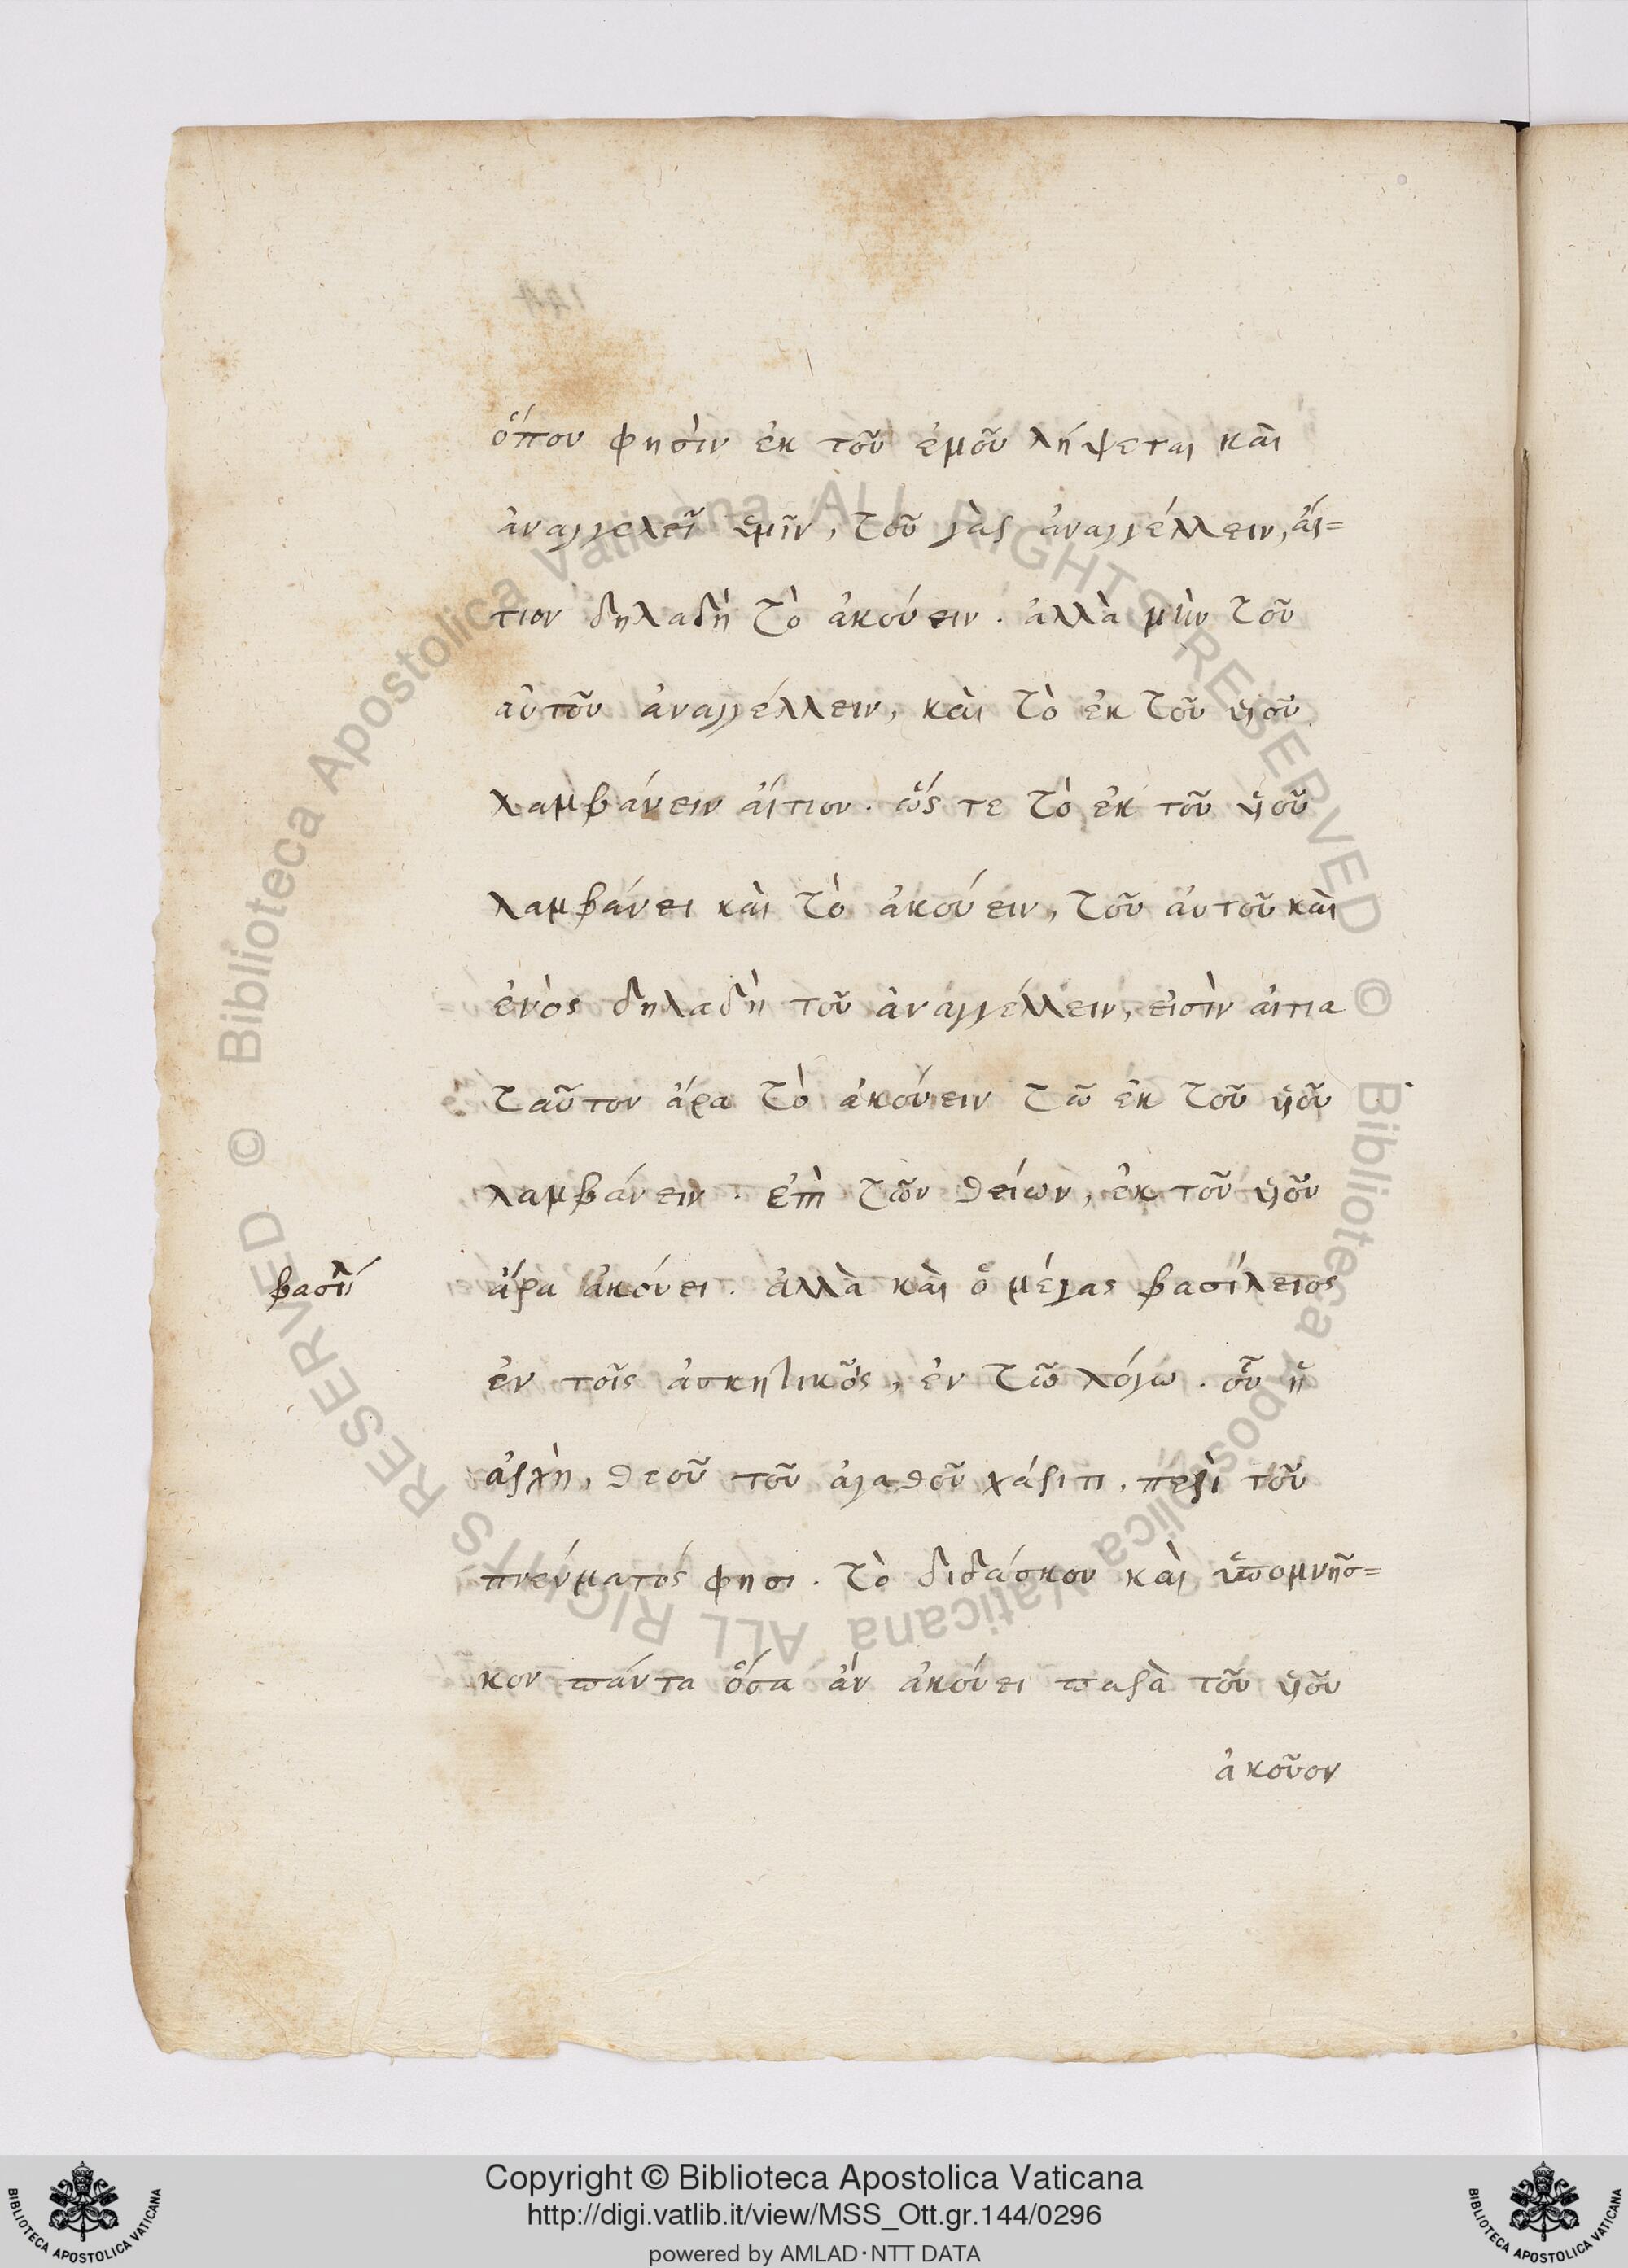 ὅπου φησὶν ἐκ τοῦ ἐμοῦ λήψεται καὶ
ἀναγγελεῖ ὑμῖν, τοῦ γὰρ ἀναγγέλλειν, αἴ=
τιον δηλαδὴ τὸ ἀκούειν. ἀλλὰ μὴν τοῦ
αὐτοῦ ἀναγγέλλειν, καὶ τὸ ἐκ τοῦ ὑιοῦ
λαμβάνειν αἴτιον. ὥς τε τὸ ἐκ τοῦ ὑιοῦ
λαμβάνει καὶ τὸ ἀκούειν, τοῦ αὐτοῦ καὶ
ἑνὸς δηλαδὴ τοῦ ἀναγγέλλειν, εἰσὶν αἴτια
ταῦτον ἄρα τὸ ἀκούειν τῶ ἐκ τοῦ ὑιοῦ
λαμβάνειν. ἐπὶ τῶν θείων, ἐκ τοῦ ὑιοῦ
βασιλεί
ἄρα ἀκούει. ἀλλὰ καὶ ὁ μέγας βασίλειος
ἐν τοῖς ἀσκητικοῖς, ἐν τῶ λόγω. οὗ ἡ
ἀρχὴ, θεοῦ τοῦ ἀγαθοῦ χάριτι. περὶ τοῦ
πνεύματός φησι. τὸ διδάσκον καὶ ὑπομνῆσ=
κον πάντα ὅσα ἂν ἀκούει παρὰ τοῦ ὑιοῦ
ἀκοῦον
Copyright © Biblioteca Apostolica Vaticana
http://digi.vatlib.it/view/MSS_Ott.gr.144/0296
powered by AMLAD·NTT DATA
BIBLIOTECA APOSTOLICA VATICANA
BIBLIOTECA APOSTOLICA VATICANA
© Biblioteca Apostolica Vaticana ALL RIGHTS RESERVED © Biblioteca Apostolica Vaticana ALL RIGHTS RESERVED